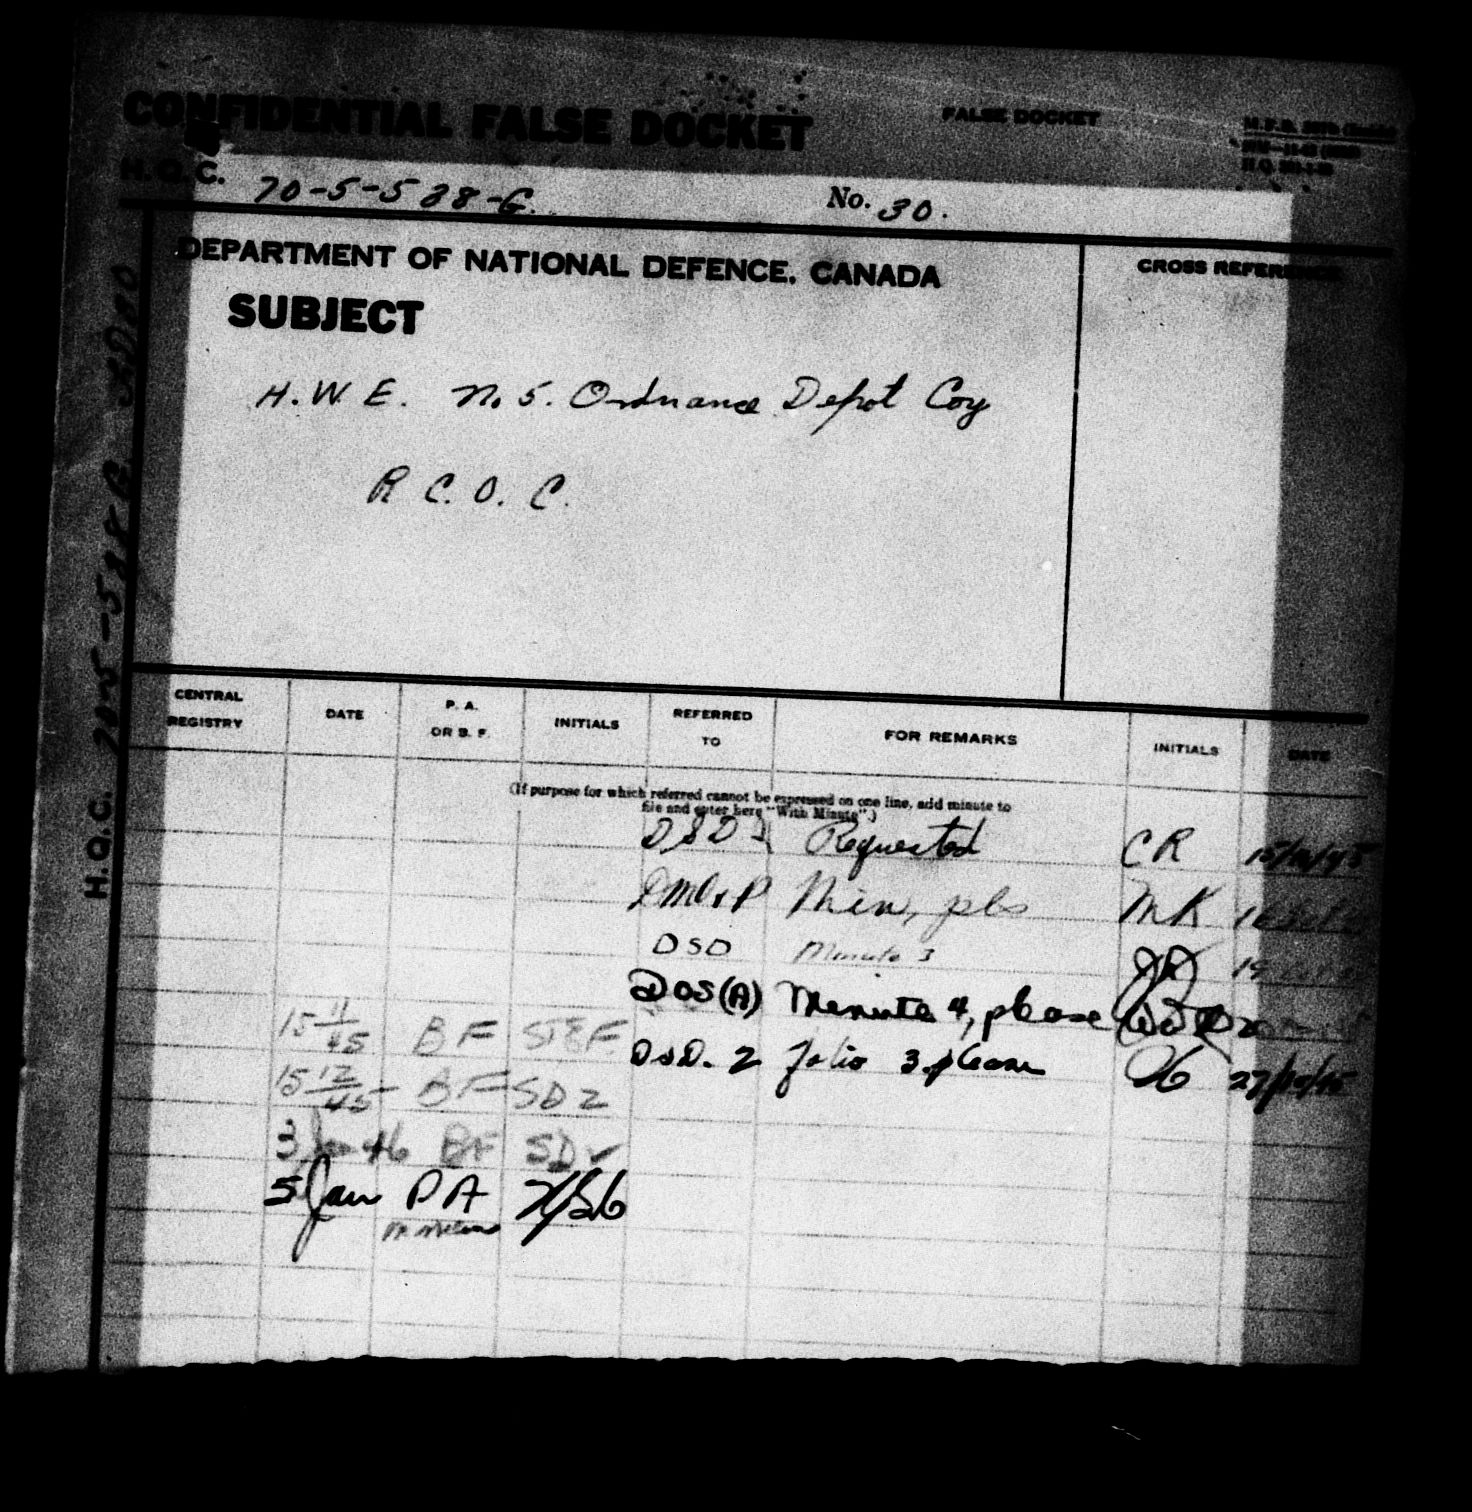 CONFIDENTIAL FALSE DOCKET
FALSE DOCKET
H.Q.C. 70-5-528-G. No. 30.
DEPARTMENT OF NATIONAL DEFENCE, CANADA
CROSS REFERENCE
SUBJECT
H.W.E. No. 5. Ordnance Depot Coy
R.C.O.C.
CENTRAL REGISTRY DATE P. A. OR B. F. INITIALS REFERRED TO FOR REMARKS INITIALS DATE
(If purpose for which referred cannot be expressed on one line, add minute to
file and enter here "With Minute".)
DSD Requested CR
Min, pls MK
DSD Minute 3
DOS(A) Minute 4, please
15 11/45 BF
DSD. 2 folio 3 please 27/10/45
15 12/45 BF SD2
3 Jan 46 BF SD
5 Jan PA
H.Q.C.